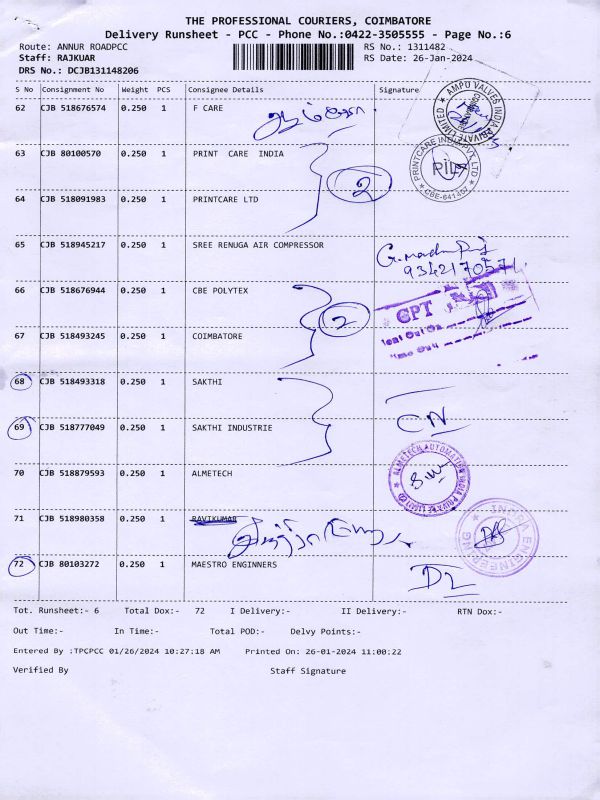 THE PROFESSIONAL COURIERS, COIMBATORE
Delivery Runsheet - PCC - Phone No.:0422-3505555 - Page No.:6
Route: ANNUR ROADPCC RS No.: 1311482
Staff: RAJKUAR RS Date: 26-Jan-2024
DRS No.: DCJB131148206
S No Consignment No Weight PCS Consignee Details Signature
62 CJB 518676574 0.250 1 F CARE
AMPO VALVES INDIA PRIVATE LIMITED
63 CJB 80100570 0.250 1 PRINT CARE INDIA
PRINTCARE INDIA PVT. LTD
PIL
CBE-641407
2
64 CJB 518091983 0.250 1 PRINTCARE LTD
65 CJB 518945217 0.250 1 SREE RENUGA AIR COMPRESSOR
66 CJB 518676944 0.250 1 CBE POLYTEX
GPT
2
67 CJB 518493245 0.250 1 COIMBATORE
68 CJB 518493318 0.250 1 SAKTHI
CN
69 CJB 518777049 0.250 1 SAKTHI INDUSTRIE
70 CJB 518879593 0.250 1 ALMETECH
ALMETECH AUTOMATION INDIA PRIVATE LIMITED
71 CJB 518980358 0.250 1 RAVIKUMAR
72 CJB 80103272 0.250 1 MAESTRO ENGINNERS
Tot. Runsheet:- 6 Total Dox:- 72 I Delivery:- II Delivery:- RTN Dox:-
Out Time:- In Time:- Total POD:- Delvy Points:-
Entered By :TPCPCC 01/26/2024 10:27:18 AM Printed On: 26-01-2024 11:00:22
Verified By Staff Signature